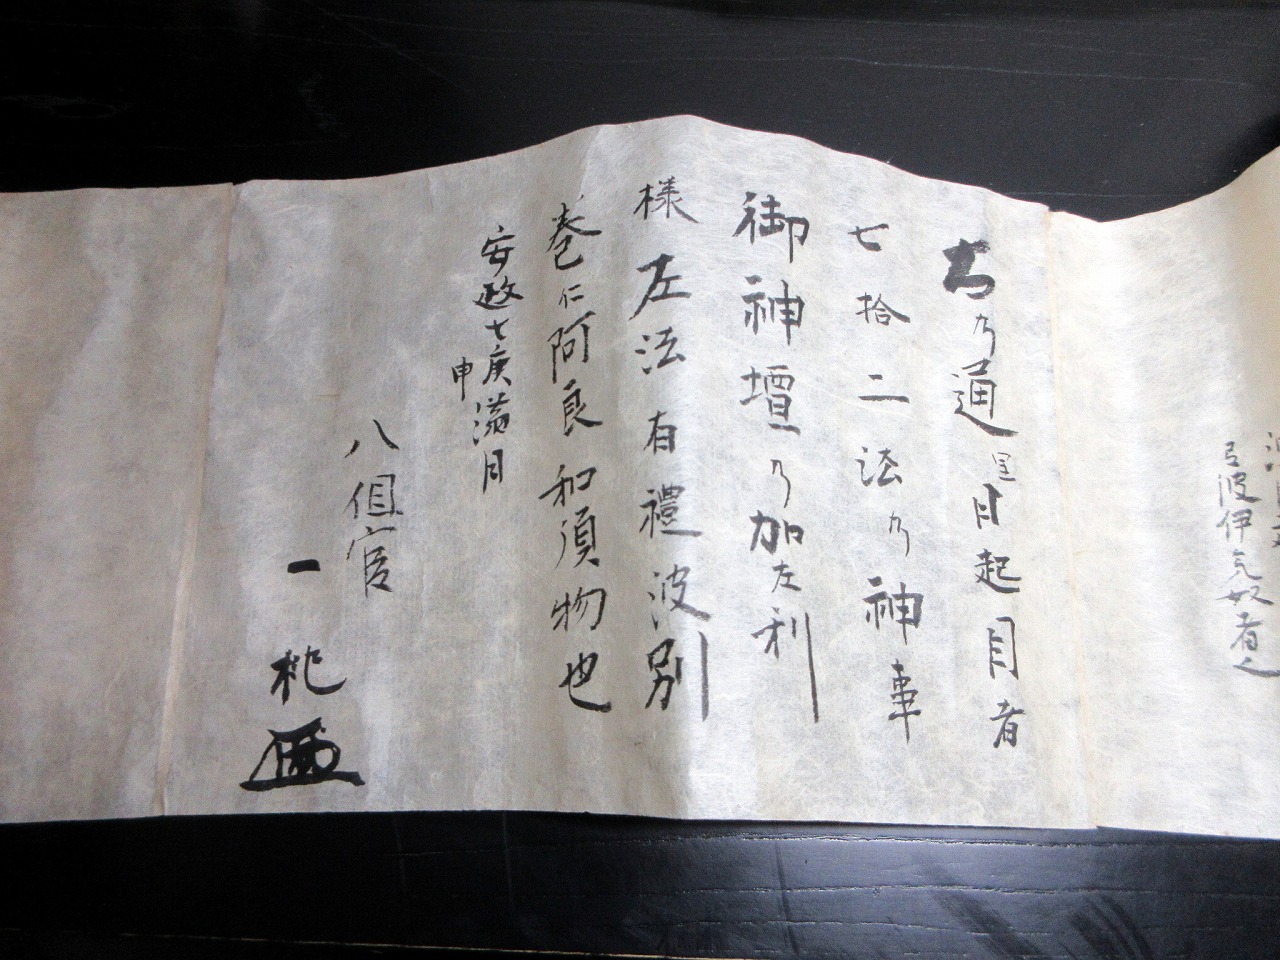 弖波伊气奴者〻
右乃通里目起目者
七拾二法乃神事
御神壇乃加左利
様左法有禮波別
巻仁阿良和須物也
安政七庚申満月
八但官
一